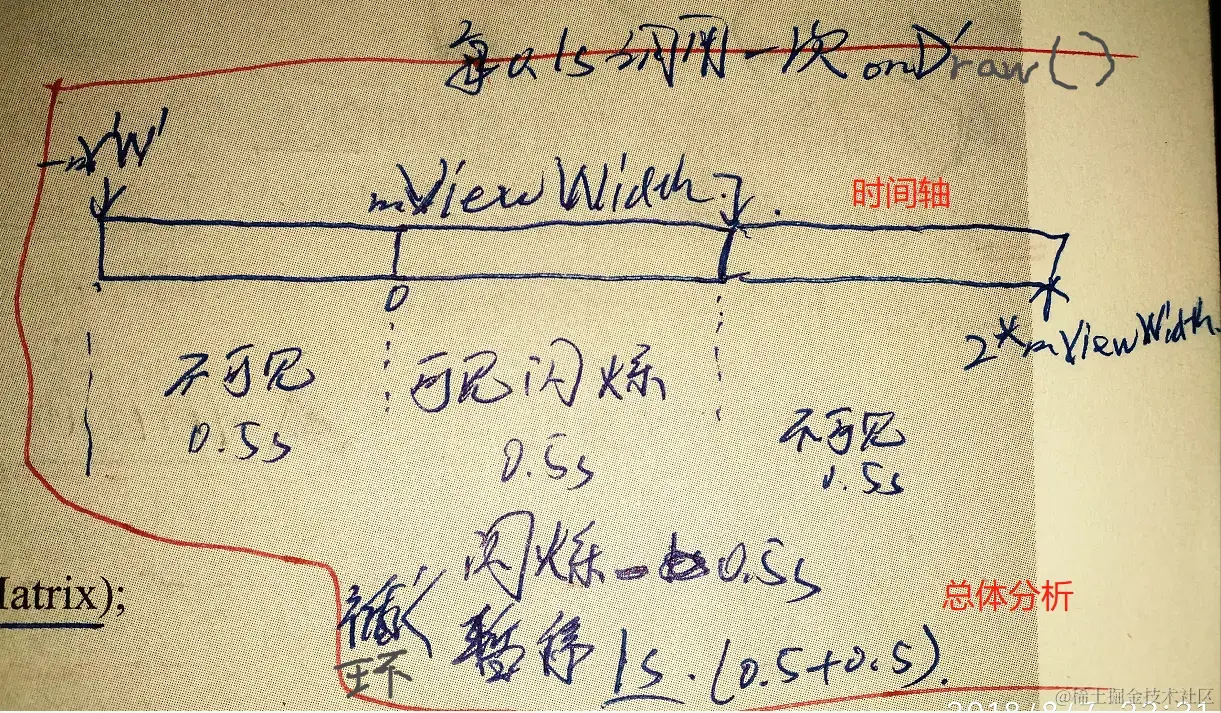 每次1s调用一次onDraw()
-mVW
mViewWidth
时间轴
0
2*mViewWidth
不可见
可见闪烁
0.5s
0.5s
不可见
0.5s
闪烁
0.5s
atrix);
总体分析
循环
暂停1s.(0.5+0.5).
@稀土掘金技术社区